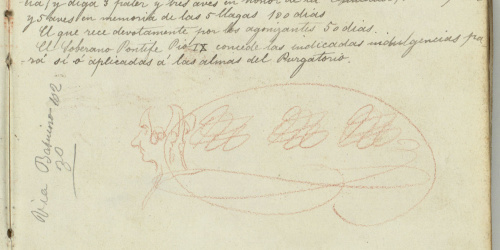 y diga 3 pater y tres aves en honor de
y 5 aves en memoria de las 5 llagas 100 dias
El que rece devotamente por los agonizantes 50 dias.
El Soberano Pontife Pio IX concede las indicadas indulgencias pa
ra si ó aplicadas á las almas del Purgatorio.
Via